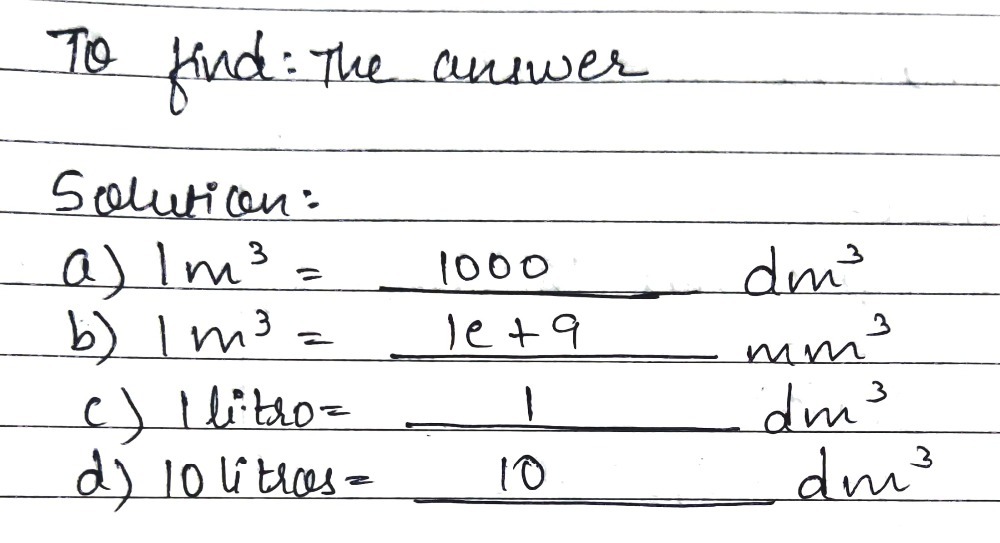 To find: The answer
Solution:
a) 1 m³ = 1000 dm³
b) 1 m³ = 1e + 9 mm³
c) 1 litro = 1 dm³
d) 10 litros = 10 dm³